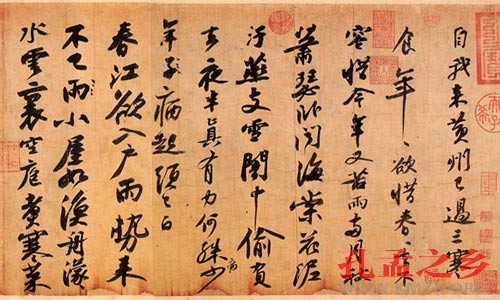 自我来黄州已過三寒
食年〻欲惜春〻去不
容惜今年又苦雨兩月秋
蕭瑟卧聞海棠花泥
汙燕支雪闇中偷負
去夜半真有力何殊少
病
年子病起頭已白
春江欲入户雨勢来
不已雨小屋如漁舟濛〻
水雲裏空庖煮寒菜
孔孟之乡